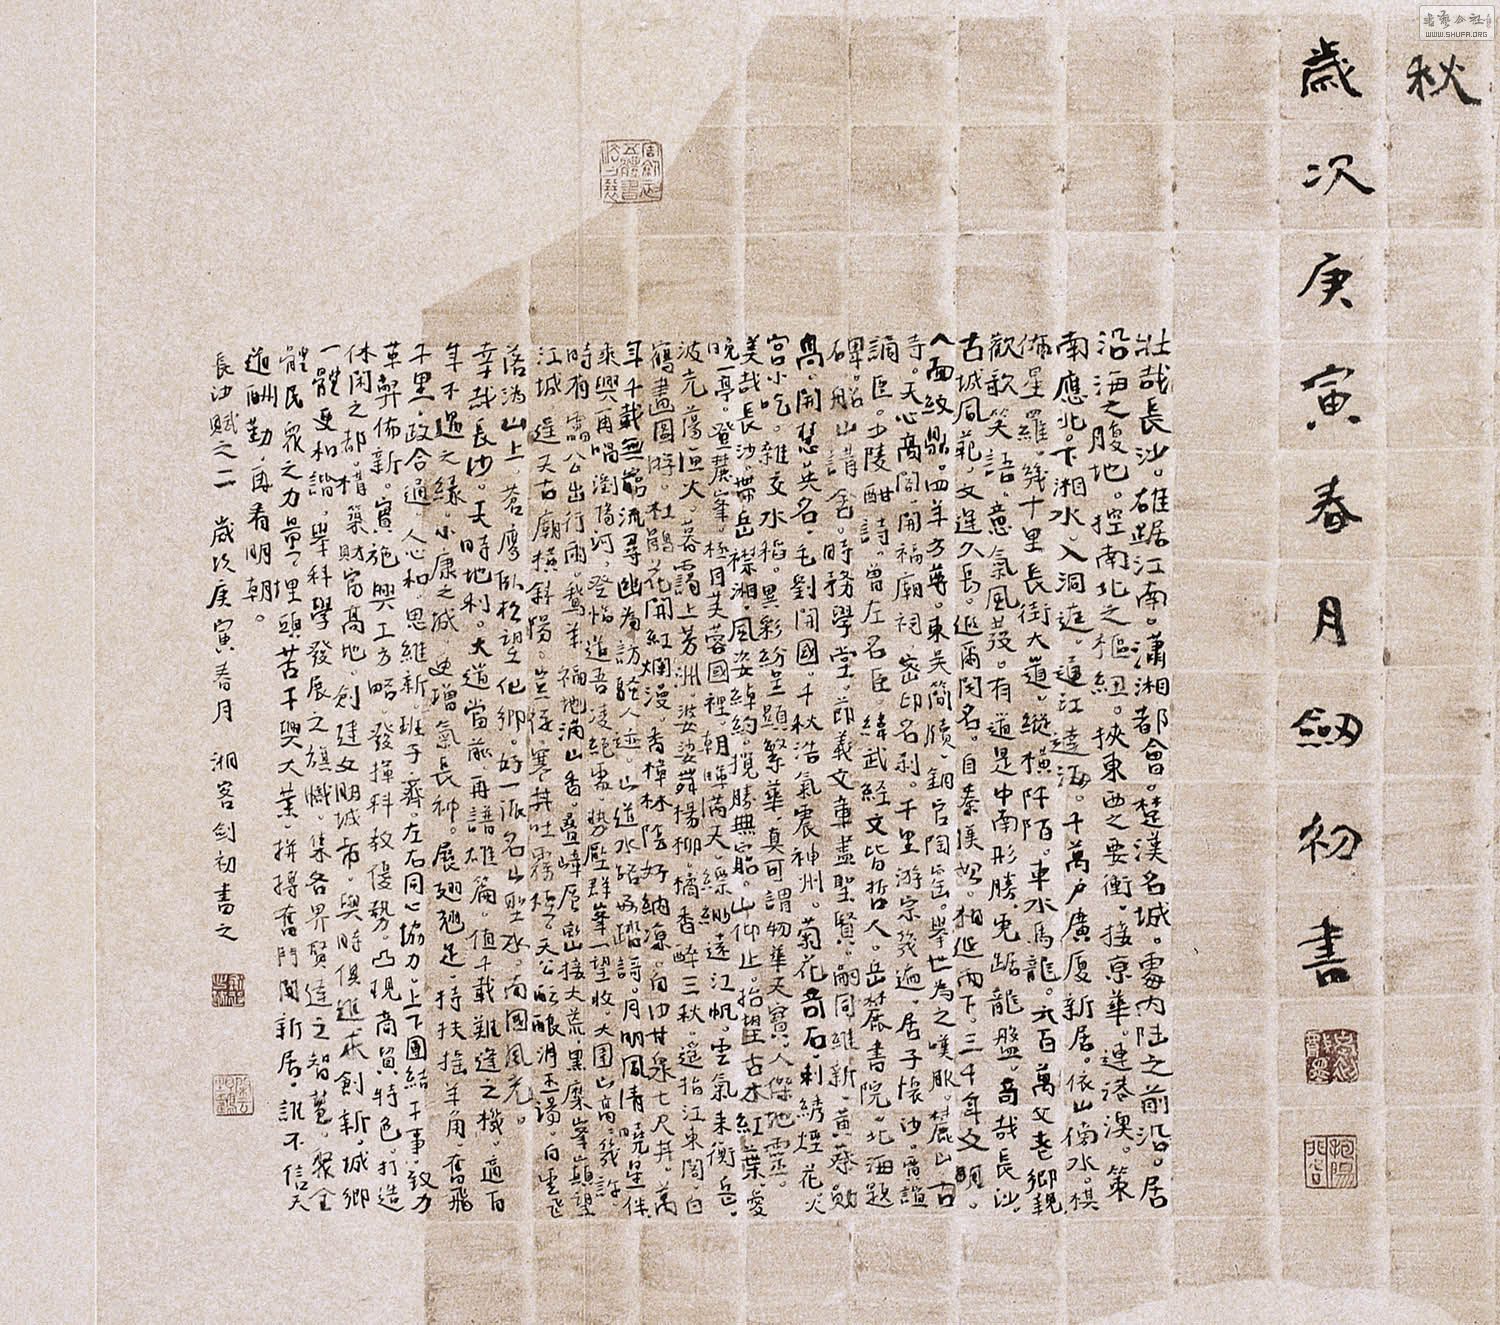 秋
歲次庚寅春月劔初書
壯哉長沙。雄踞江南。瀟湘都會。楚漢名城。處內陸之前沿。居
沿海之腹地。控南北之樞紐。挾東西之要衝。接京華。連港澳。策
南應北。下湘水。入洞庭。通江達海。千萬戶廣厦新居。依山傍水。棋
佈星羅。幾十里長街大道。縱橫阡陌。車水馬龍。六百萬父老鄉親
歡歌笑語。意氣風發。有道是中南形勝。虎踞龍盤。奇哉長沙。
古城風範。文進久長。遐爾聞名。自秦漢始。相延而下。三千年文明。
人面紋鼎。四羊方尊。東吴簡牘。銅官陶窑。舉世為之嘆服。麓山古
寺。天心高閣。開福廟祠。密印名刹。千里游宗幾遍。居子懷沙。賈誼
誦臣。少陵酣詩。曾左名臣。緯武經文皆哲人。岳麓書院。北海題
碑。船山講舍。時務學堂。節義文章盡聖賢。嗣同維新。黃蔡勛
高。開慧英名。毛劉開國。千秋浩氣震神州。菊花奇石。刺綉煙花火
宫小吃。雜交水稻。異彩紛呈顯繁華。真可謂物華天寶。人傑地靈。
美哉長沙。帶岳襟湘。風姿綽約。攬勝無窮。山仰止。抬望古木紅葉。愛
晚一亭。登麓峯。極目芙蓉國裡。朝暉滿天。縹緲遠江帆。雲氣来衡岳。
波光蕩漁火。暮靄上芳洲。婆娑舞楊柳。橘香醉三秋。遥指江東閣。白
鶴畫图游。杜鵑花開紅爛漫。香樟林陰好納凉。白沙甘泉七尺井。萬
年千載無窮流。尋幽為訪駐人迹。山道水路好踏詩。月明風清曉星伴
乘興再唱瀏陽河。登臨道吾凌絶處。勢壓群峯一望收。大圍山高。幾許
時有雷公出行雨。鵝羊福地滿山香。叠嶂層巒接大荒。黑麋峯巔望
江城。遥天古廟横斜陽。岂徑寒井吐霧標。天公酩酿洞丕湯。白雲飛
落溈山上。蒼摩臥松望他鄉。好一派名山聖水。南國風光。
幸哉長沙。天時地利。大道當前。再譜雄篇。值千載難逢之機。適百
年不遇之緣。小康之減。更增氣長神。展翅翘足。持扶摇羊角奮飛
千里。政合通。人心和。思維新。班子齊。左右同心協力。上下團結干事。致力
革弊佈新。實施興工方略。發揮科教優勢。凸現商貿特色。打造
休閑之都。構築財富高地。創建文明城市。與時俱進求創新。城鄉
一體更和諧。舉科學發展之旗幟。集各界賢達之智慧。聚全
體民衆之力量。埋頭苦干興大業。拼搏奮鬥開新居。誰不信天
道酬勤。再看明朝。
長沙賦之二 歲次庚寅春月 湘客剑初書之
書藝公社
WWW.SHUFA.ORG